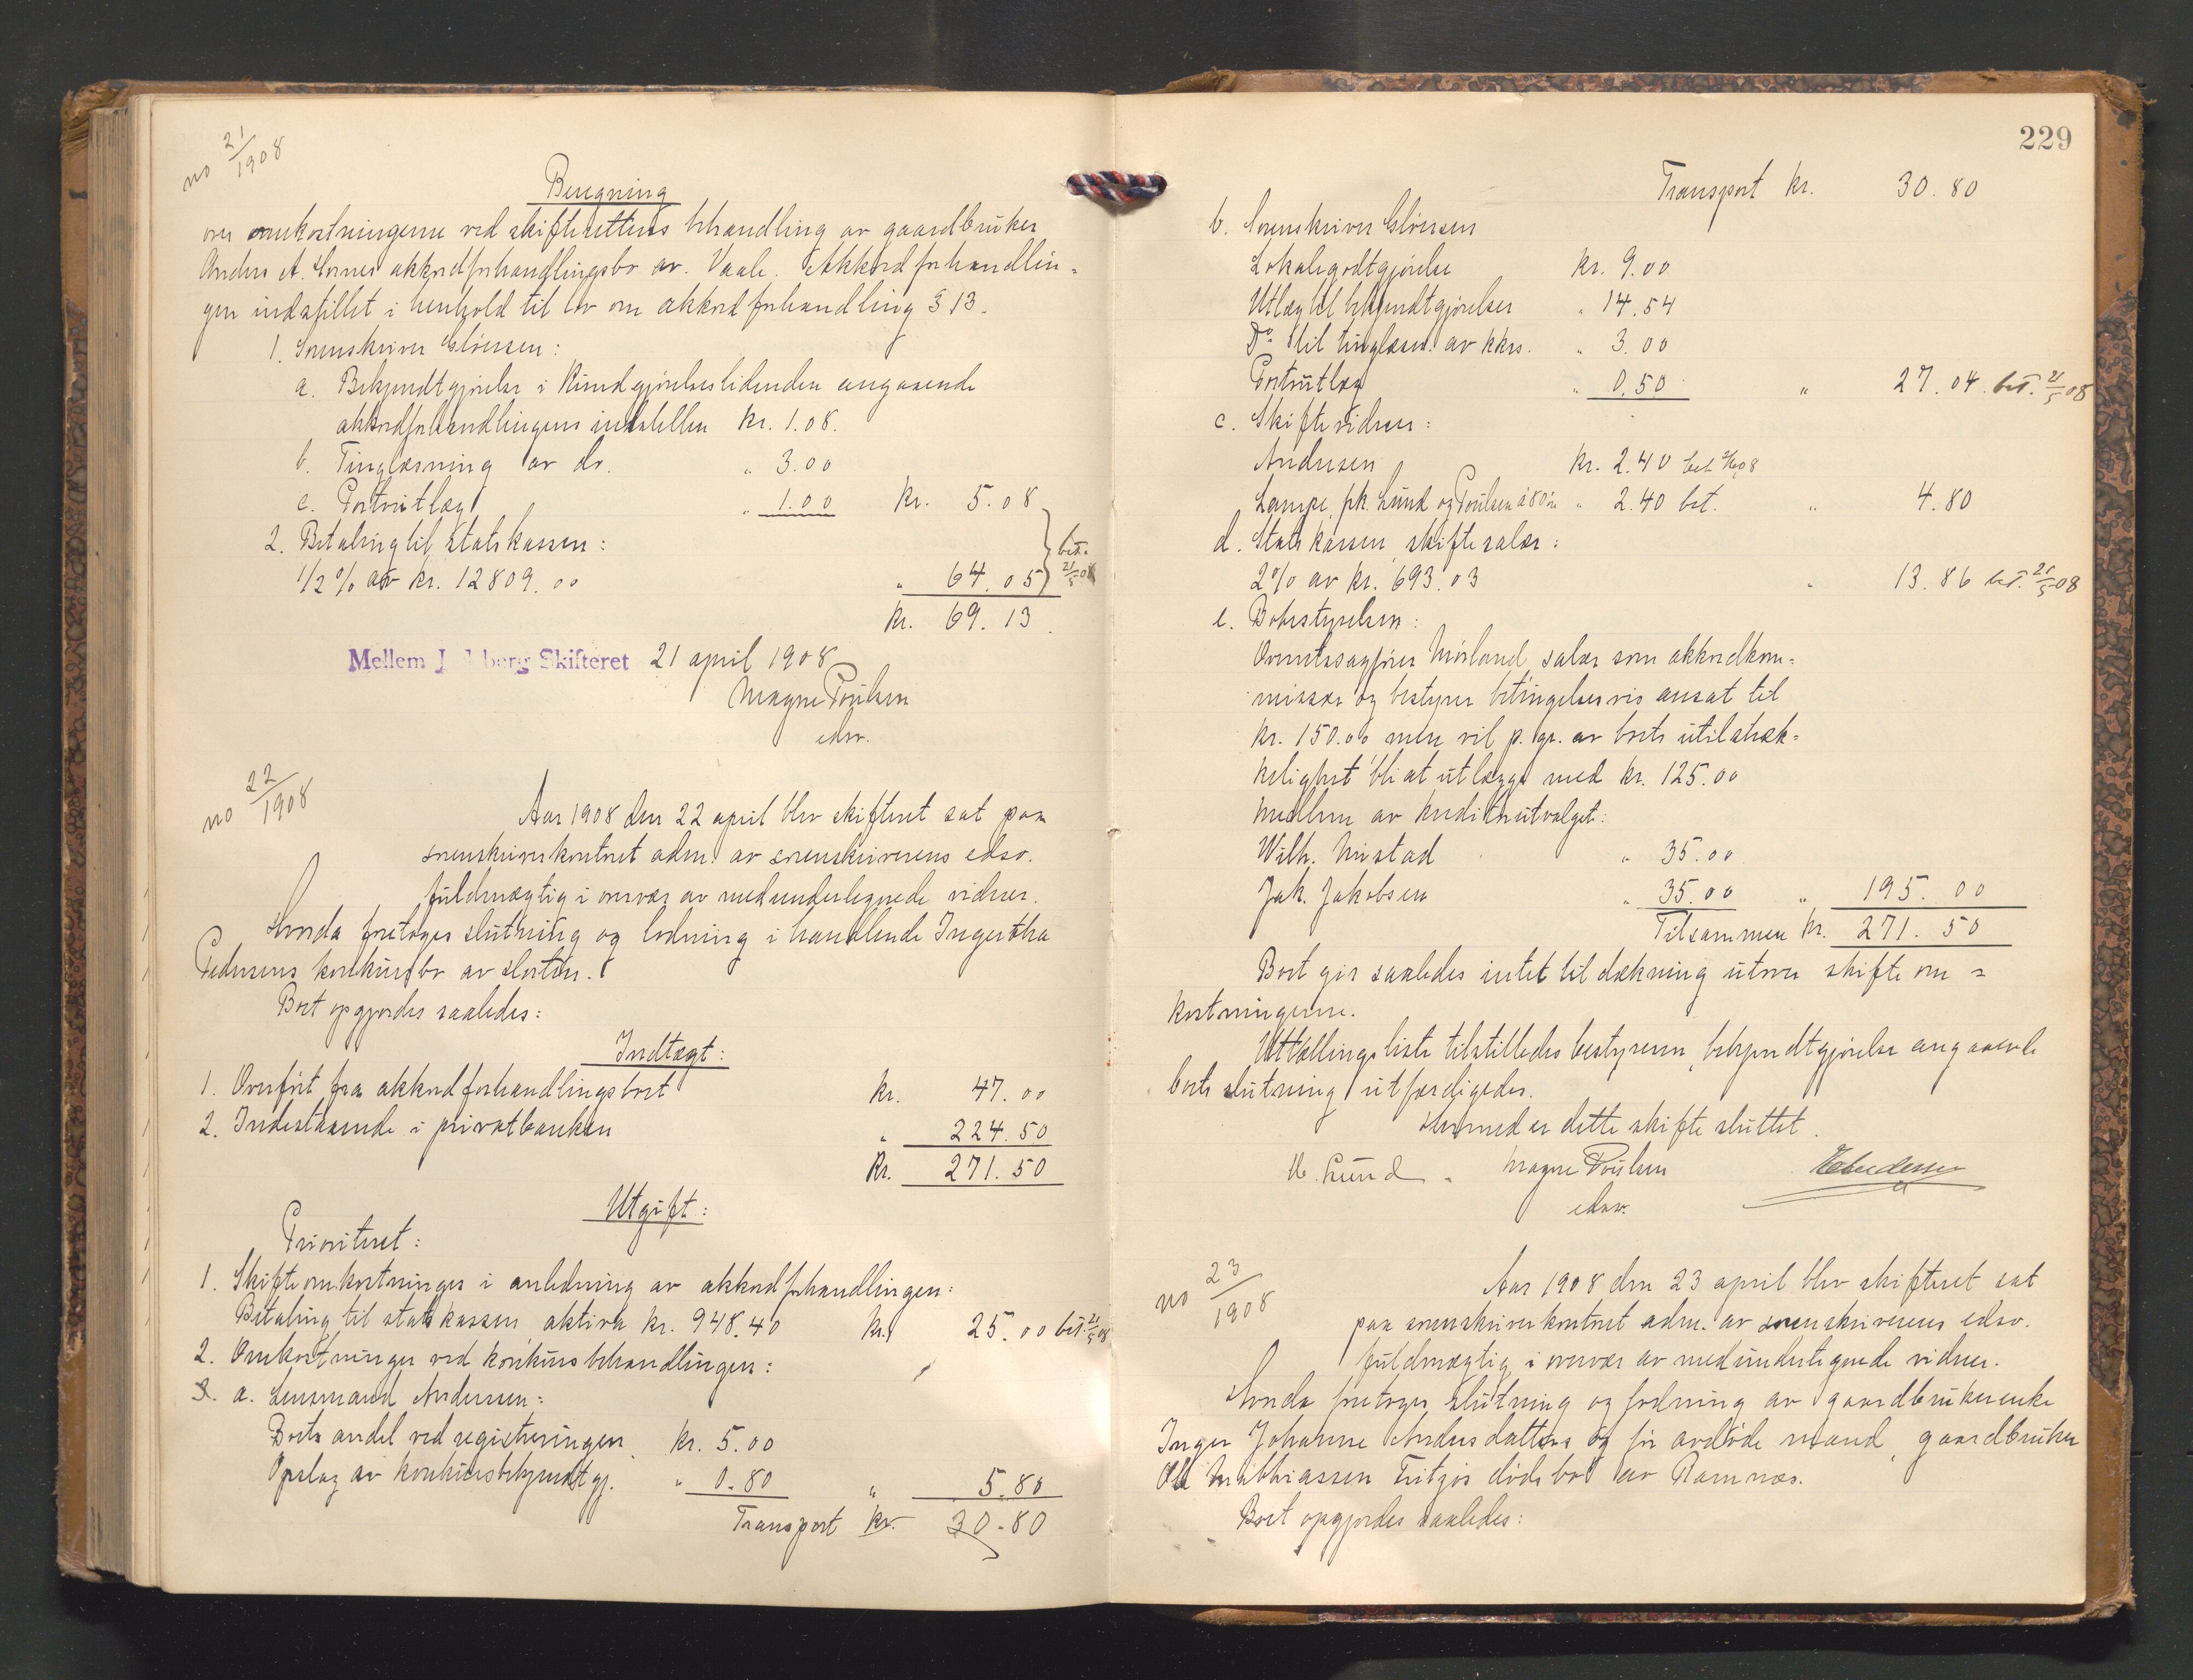 no 21/1908
Beregning
over omkostningerne ved skifterettens behandling av gaardbruker
Anders A. Sornes akkordforhandlingsbo av Vaale. Akkordforhandlin-
gen indstillet i henhold til lov om akkordforhandling § 13.
1. Sorenskriver Cløvesen:
a. Bekjendtgjørelse i Kundgjørelsestidenden angaaende
akkordforhandlingens indstillen kr. 1.08.
b. Tinglæsning av do. " 3.00
c. Portoutlæg " 1.00 kr. 5.08
2. Betaling til statskassen:
1/2 % av kr. 12809.00 " 64.05
bet. 21/5 08
kr. 69.13
Mellem Jarlsberg Skifteret 21 april 1908
Magne Poulsen
edsv.
no 22/1908
Aar 1908 den 22 april blev skifteret sat paa
sorenskriverkontoret adm. av sorenskriverens edsv.
fuldmægtig i overvær av medundertegnede vidner.
Hvorda foretoges slutning og lodning i handlende Ingertha
Pedersens konkursbo av Horten.
Boet opgjordes saaledes:
Indtægt:
1. Overført fra akkordforhandlingsboet kr. 47.00
2. Indestaaende i privatbanken " 224.50
Kr. 271.50
Utgift:
Prioritet:
1. Skifteomkostninger i anledning av akkordforhandlingen:
Betaling til statskassen aktiva kr. 948.40 kr. 25.00 bet. 21/5 08
2. Omkostninger ved konkursbehandlingen:
a. Lensmand Andersen:
Boets andel ved registreringen kr. 5.00
Opslag av konkursbekjendtgj. " 0.80 " 5.80
Transport kr. 30.80
229
Transport kr. 30.80
b. Sorenskriver Cløvesen
Lokalegodtgjørelse kr. 9.00
Utlæg til bekjendtgjørelser " 14.54
Do til tinglæsn. av kkrs. " 3.00
Portoutlæg " 0.50 " 27.04 bet. 21/5 08
c. Skiftevidner:
Andersen kr. 2.40 bet
Lampe, fhk. Lund og Poulsen à 80 ø " 2.40 bet. " 4.80
d. Statskassen, skiftesalær:
2% av kr. 693.03 " 13.86 bet. 21/5 08
e. Bobestyrelsen:
Overretssagfører Mørland, salær som akkordkom-
missær og bestyrer betingelsesvis ansat til
kr. 150.00 men vil p. gr. av boets utilstræk-
kelighet bli at utlægge med kr. 125.00
Medlem av kreditorutvalget:
Wilh. Mustad " 35.00
Jak. Jakobsen " 35.00 " 195.00
Tilsammen kr. 271.50
Boet gir saaledes intet til dækning utover skifteom-
kostningerne.
Uttællingsliste tilstilledes bestyreren, bekjendtgjørelse angaaende
boets slutning utfærdigedes.
Hermed er dette skifte sluttet.
M. Lund. Magne Poulsen
edsv.
no 23/1908
Aar 1908 den 23 april blev skifteret sat
paa sorenskriverkontoret adm. av sorenskriverens edsv.
fuldmægtig i overvær av medundertegnede vidner.
Hvorda foretoges slutning og lodning av gaardbrukerenke
Inger Johanne Andersdatters og før avdøde mand, gaardbruker
Ole Mathiassen Fritzøs dødsbo av Ramnæs.
Boet opgjordes saaledes: